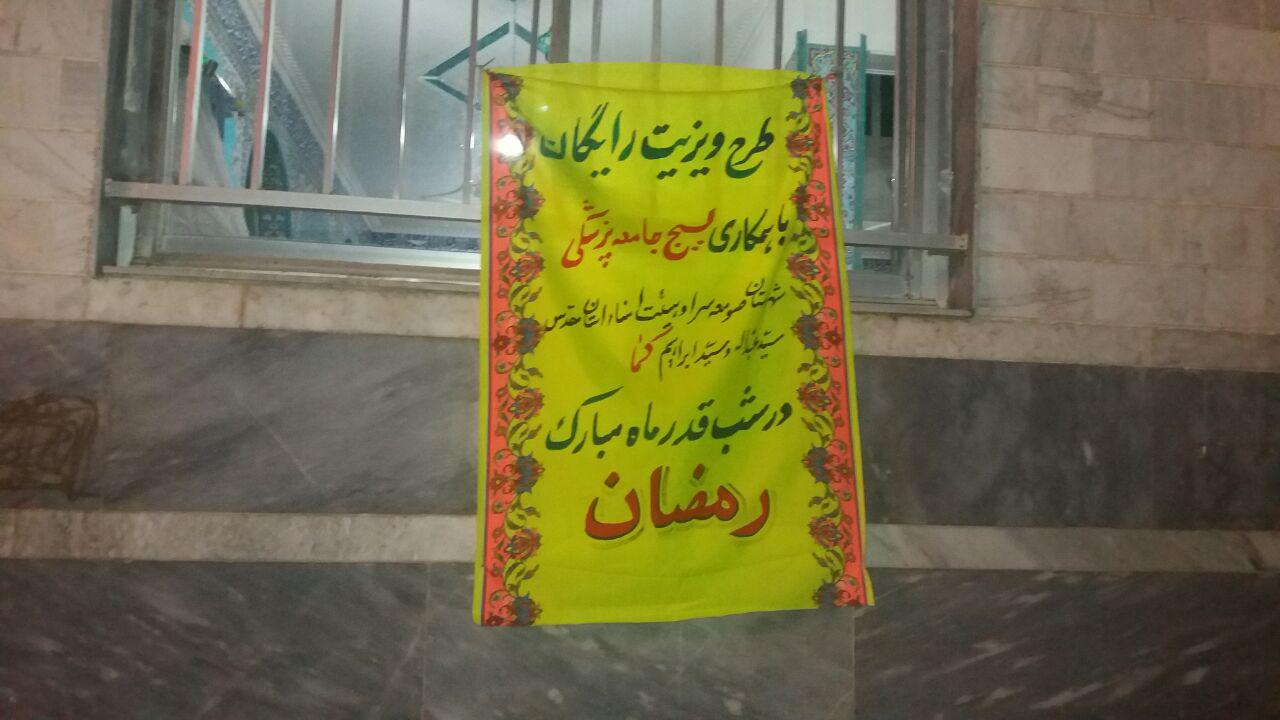 طرح ویزیت رایگان
با همکاری بسیج جامعه پزشکی
شهرستان صومعه سرا و هیئت امناء آستان مقدس
سید عبداله و سید ابراهیم گسکره
در شب قدر ماه مبارک
رمضان